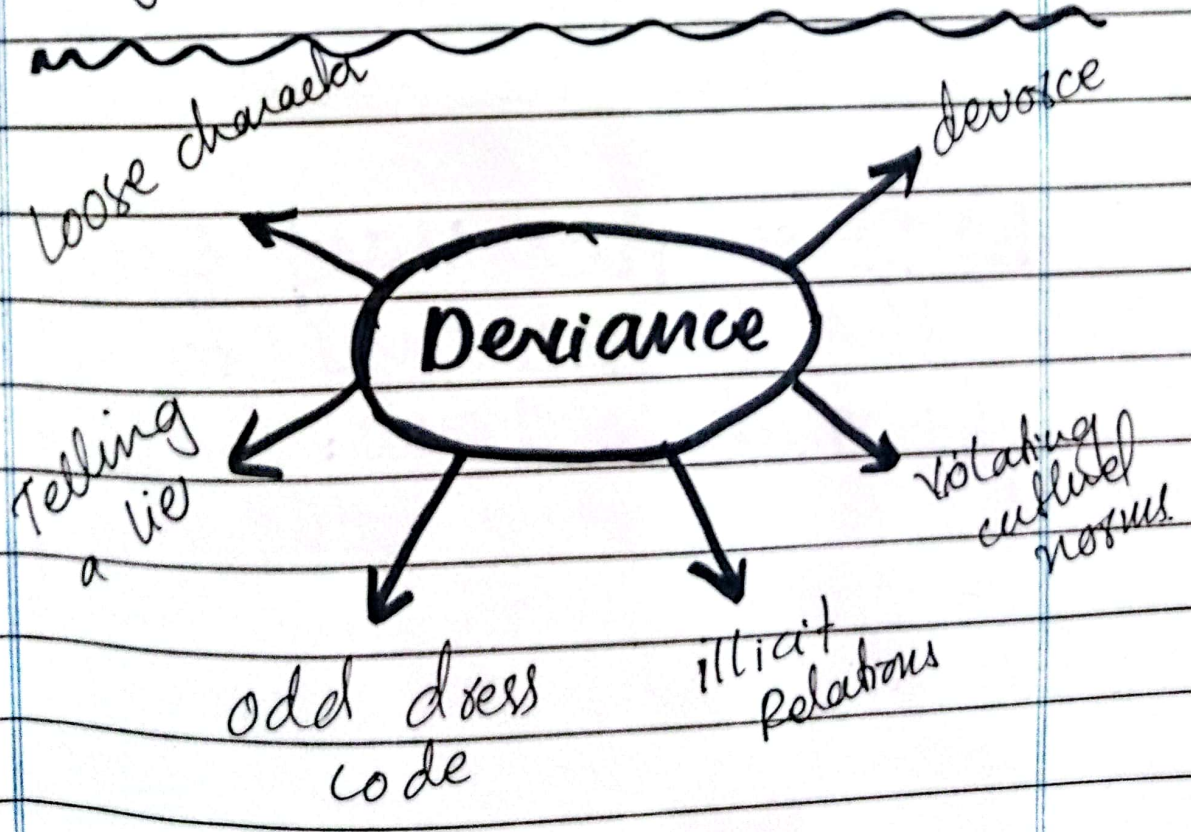 Loose character
devorce
Deviance
Telling
a lie
violating
cultural
norms.
odd dress
code
illicit
Relations